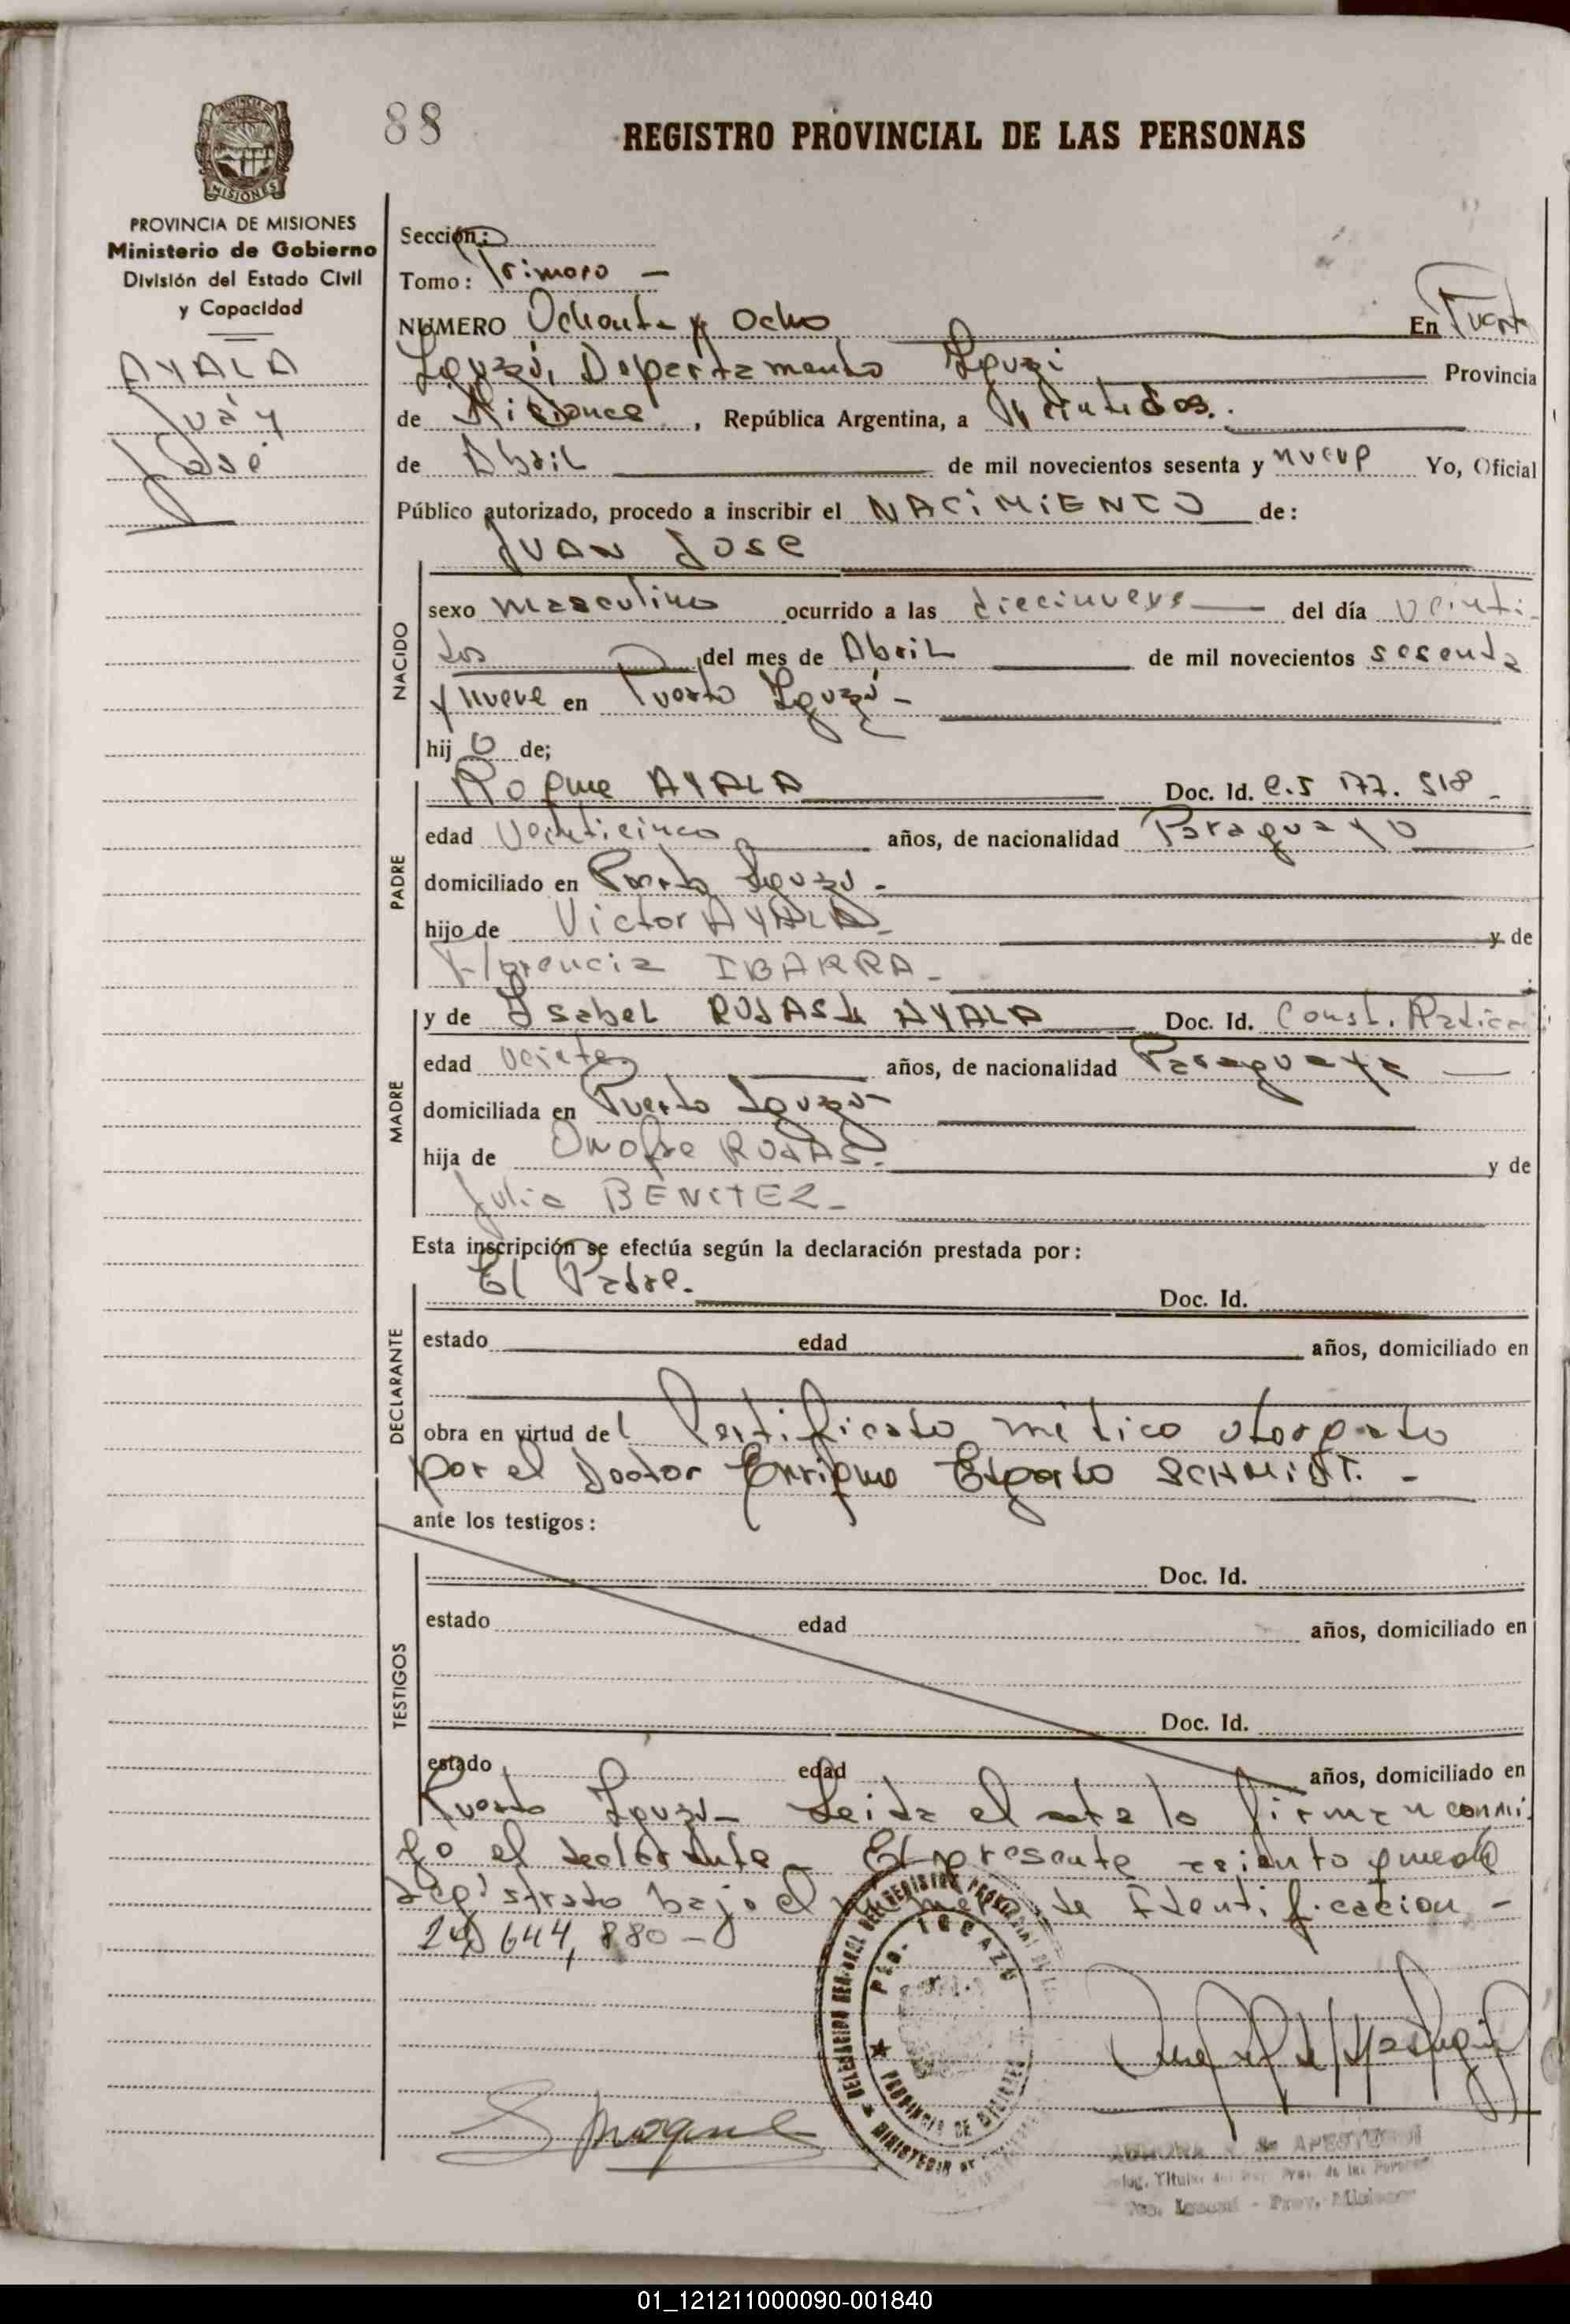 88
REGISTRO PROVINCIAL DE LAS PERSONAS
MISIONES
PROVINCIA DE MISIONES
Ministerio de Gobierno
División del Estado Civil
y Capacidad
AYALA
Juan
José
Sección:
Tomo: Primero —
NUMERO Ochenta y Ocho En Puerto
Iguazú, Departamento Iguazú Provincia
de Misiones, República Argentina, a Veintidos.
de Abril de mil novecientos sesenta y nueve Yo, Oficial
Público autorizado, procedo a inscribir el NACIMIENTO de:
JUAN JOSE
NACIDO
sexo masculino ocurrido a las diecinueve del día veinti-
dos del mes de Abril de mil novecientos sesenta
y nueve en Puerto Iguazú -
hijo de;
PADRE
Roque AYALA Doc. Id. C.I 177. 518 -
edad Veinticinco años, de nacionalidad Paraguayo
domiciliado en Puerto Iguazú -
hijo de Victor AYALA - y de
Florencia IBARRA -
MADRE
y de Isabel ROJAS de AYALA Doc. Id. Const. Radica
edad años, de nacionalidad Paraguaya
domiciliada en Puerto Iguazú -
hija de Onofre ROJAS - y de
Julia BENITEZ -
Esta inscripción se efectúa según la declaración prestada por:
DECLARANTE
El Padre. Doc. Id.
estado edad años, domiciliado en
obra en virtud del Certificado médico otorgado
por el Doctor Enrique Edgardo SCHMIDT. -
ante los testigos:
TESTIGOS
Doc. Id.
estado edad años, domiciliado en
Doc. Id.
estado edad años, domiciliado en
Puerto Iguazú - Leida el acta la firman conmi-
go el declarante - El presente asiento queda
registrado bajo el numero de Identificacion -
20,644,880 -
DELEGACION REGIONAL DEL REGISTRO PROVINCIAL DE LAS
PTO. IGUAZU
PROVINCIA DE MISIONES
MINISTERIO DE
Pto. Iguazú - Prov. Misiones
01_121211000090-001840